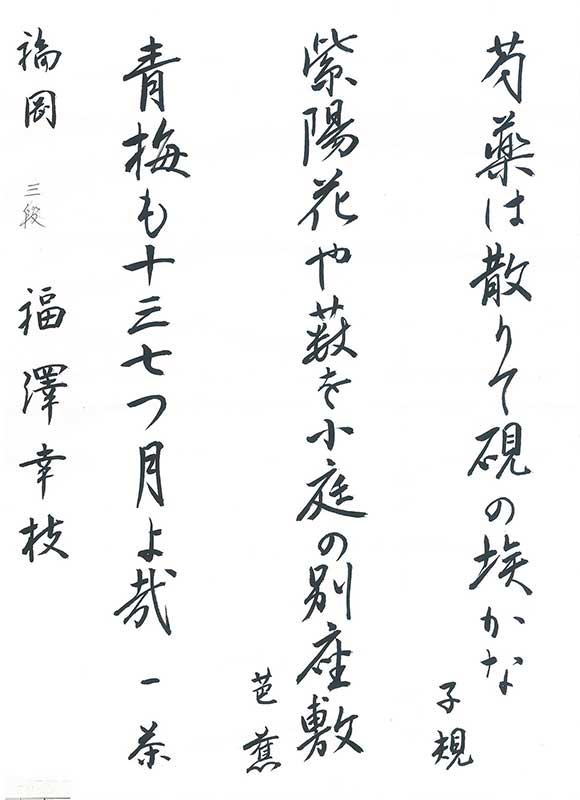 芍薬は散りて硯の埃かな
子規
紫陽花や薮を小庭の別座敷
芭蕉
青梅も十三七つ月よ哉
一茶
福岡 三段 福澤幸枝